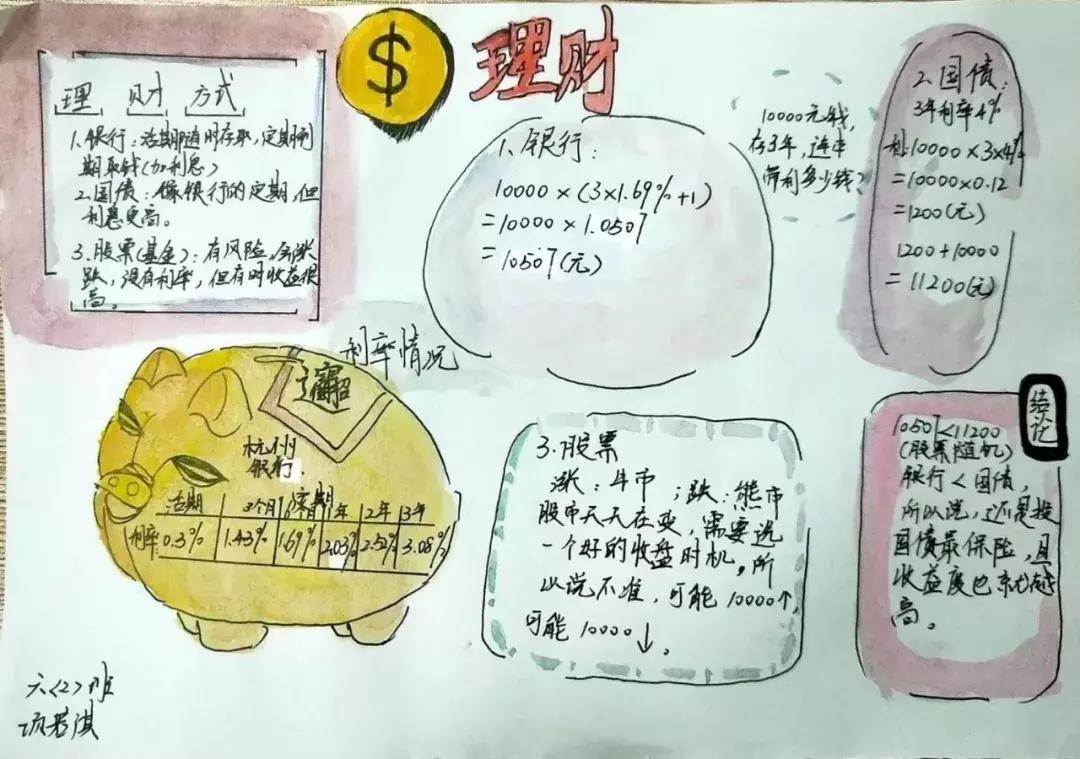 $
理财
理财方式
1.银行：活期随时存取，定期到
期取钱(加利息)
2.国债：像银行的定期，但
利息更高。
3.股票(基金)：有风险，会涨
跌，没有利率，但有时收益很
高。
1、银行：
10000×(3×1.69%+1)
=10000×1.0507
=10507(元)
10000元钱，
存3年，连本
带利多少钱？
2.国债：
3年利率4%
利:10000×3×4%
=10000×0.12
=1200(元)
1200+10000
=11200(元)
利率情况
招
杭州
银行
活期 3个月 定期 1年 2年 3年
利率 0.3% 1.43% 1.69% 2.03% 2.52% 3.08%
3.股票
涨：牛市；跌：熊市
股市天天在变，需要选
一个好的收盘时机，所
以说不准，可能10000↑
可能10000↓。
结论
10507<11200
(股票随机)
银行<国债，
所以说，还是投
国债最保险，且
收益度也就越
高。
六<2>班
项若淇